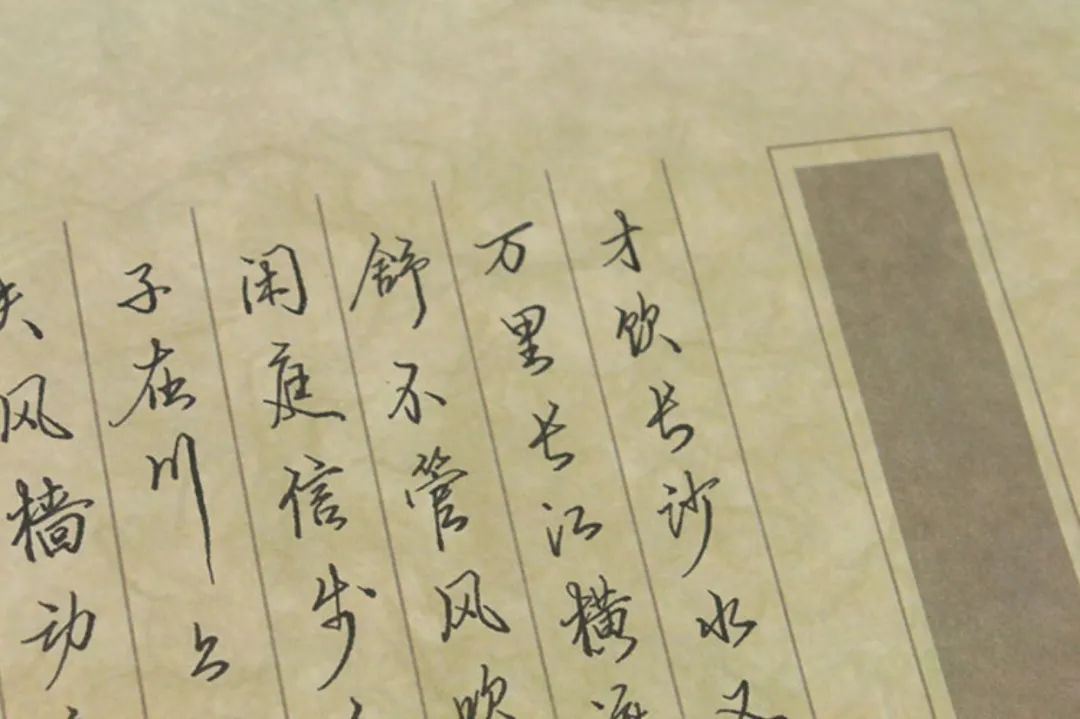 才饮长沙水又
万里长江横渡
舒不管风吹
闲庭信步
子在川上
风樯动